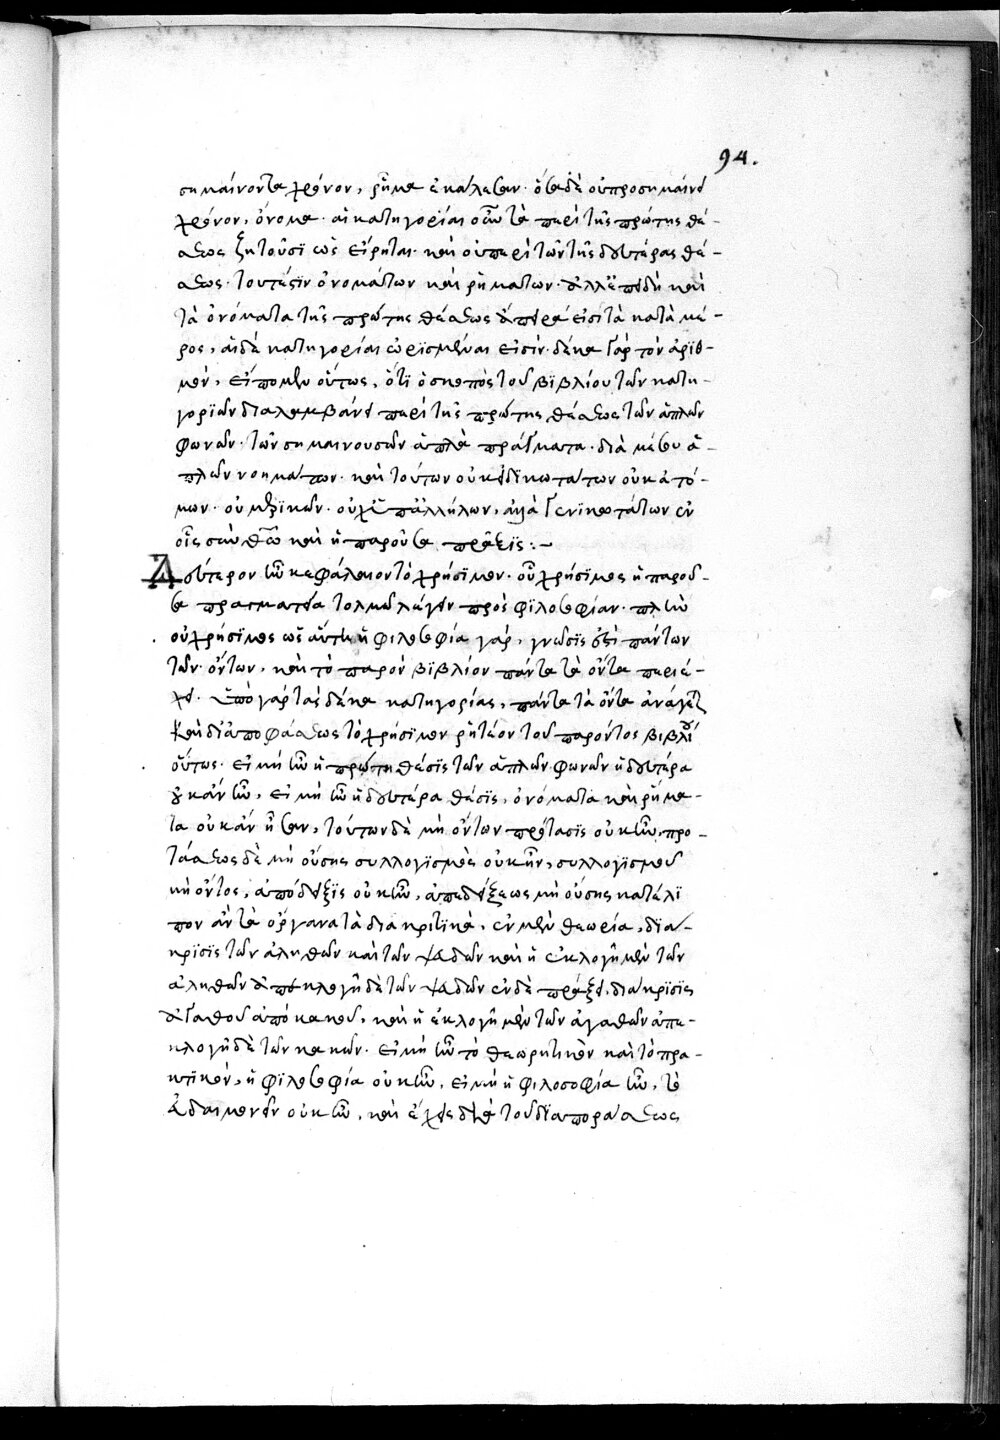 94.
σημαίνοντα χρόνον, ῥῆμα ἐκάλεσαν· ὅσα δὲ οὐ προσημαίνει
χρόνον, ὄνομα· αἱ κατηγορίαι οὖν τὰ περὶ τῆς πρώτης θέ-
σεως ζητοῦσι ὡς εἴρηται· καὶ οὐ περὶ τῶν τῆς δευτέρας θέ-
σεως· τουτέστιν ὀνομάτων καὶ ῥημάτων· ἀλλ' ἐπειδὴ καὶ
τὰ ὀνόματα τῆς πρώτης θέσεως ἄπειρά εἰσι τὰ κατὰ μέ-
ρος, αἱ δὲ κατηγορίαι ὡρισμέναι εἰσίν· δέκα γὰρ τὸν ἀριθ-
μόν, εἴπομεν οὕτως, ὅτι ὁ σκοπὸς τοῦ βιβλίου τῶν κατη-
γοριῶν διαλαμβάνει περὶ τῆς πρώτης θέσεως τῶν ἁπλῶν
φωνῶν· τῶν σημαινουσῶν ἁπλᾶ πράγματα· διὰ μέσου ἁ-
πλῶν νοημάτων· καὶ τούτων οὐκ εἰδικωτάτων οὐκ ἀτό-
μων· οὐ μερικῶν· οὐχ' ὑπαλλήλων, ἀλλὰ γενικωτάτων ἐν
οἷς σὺν θεῶ καὶ ἡ παροῦσα πρᾶξις:-
Δεύτερον ἦν κεφάλαιον τὸ χρήσιμον· οὐ χρήσιμος ἡ παροῦ-
σα πραγματεία τολμῶ λέγειν πρὸς φιλοσοφίαν· πλὴν
οὐ χρήσιμος ὡς αὕτη ἡ φιλοσοφία γάρ, γνῶσις ἐστὶ πάντων
τῶν ὄντων, καὶ τὸ παρὸν βιβλίον πάντα τὰ ὄντα περιέ-
χει· ὑπὸ γὰρ τὰς δέκα κατηγορίας, πάντα τὰ ὄντα ἀνάγεται
καὶ δι' ἀποφάσεως τὸ χρήσιμον ῥητέον τοῦ παρόντος βιβλίου
οὕτως· εἰ μὴ ἦν ἡ πρώτη θέσις τῶν ἁπλῶν φωνῶν ἡ δευτέρα
οὐκ ἂν ἦν, εἰ μὴ ἦν ἡ δευτέρα θέσις, ὀνόματα καὶ ῥήμα-
τα οὐκ ἂν ἦσαν, τούτων δὲ μὴ ὄντων πρότασις οὐκ ἦν, προ-
τάσεως δὲ μὴ οὔσης συλλογισμὸς οὐκ ἦν, συλλογισμοῦ
μὴ ὄντος, ἀπόδειξις οὐκ ἦν, ἀποδείξεως μὴ οὔσης κατέλι
πον ἂν τὰ ὄργανα τὰ διακριτικά, ἐν μὲν θεωρία, διά-
κρισις τῶν ἀληθῶν καὶ τῶν ψευδῶν καὶ ἡ ἐκλογὴ μὲν τῶν
ἀληθῶν ἀπεκλογὴ δὲ τῶν ψευδῶν ἐν δὲ πράξει, διάκρισις
ἀγαθοῦ ἀπὸ κακοῦ, καὶ ἡ ἐκλογὴ μὲν τῶν ἀγαθῶν ἀπε-
κλογὴ δὲ τῶν κακῶν· εἰ μὴ ἦν τὸ θεωρητικὸν καὶ τὸ πρα-
κτικόν, ἡ φιλοσοφία οὐκ ἦν, εἰ μὴ ἡ φιλοσοφία ἦν, τὸ
εὐδαιμονεῖν οὐκ ἦν, καὶ ἔχεις διὰ τοῦ διαποράσεως